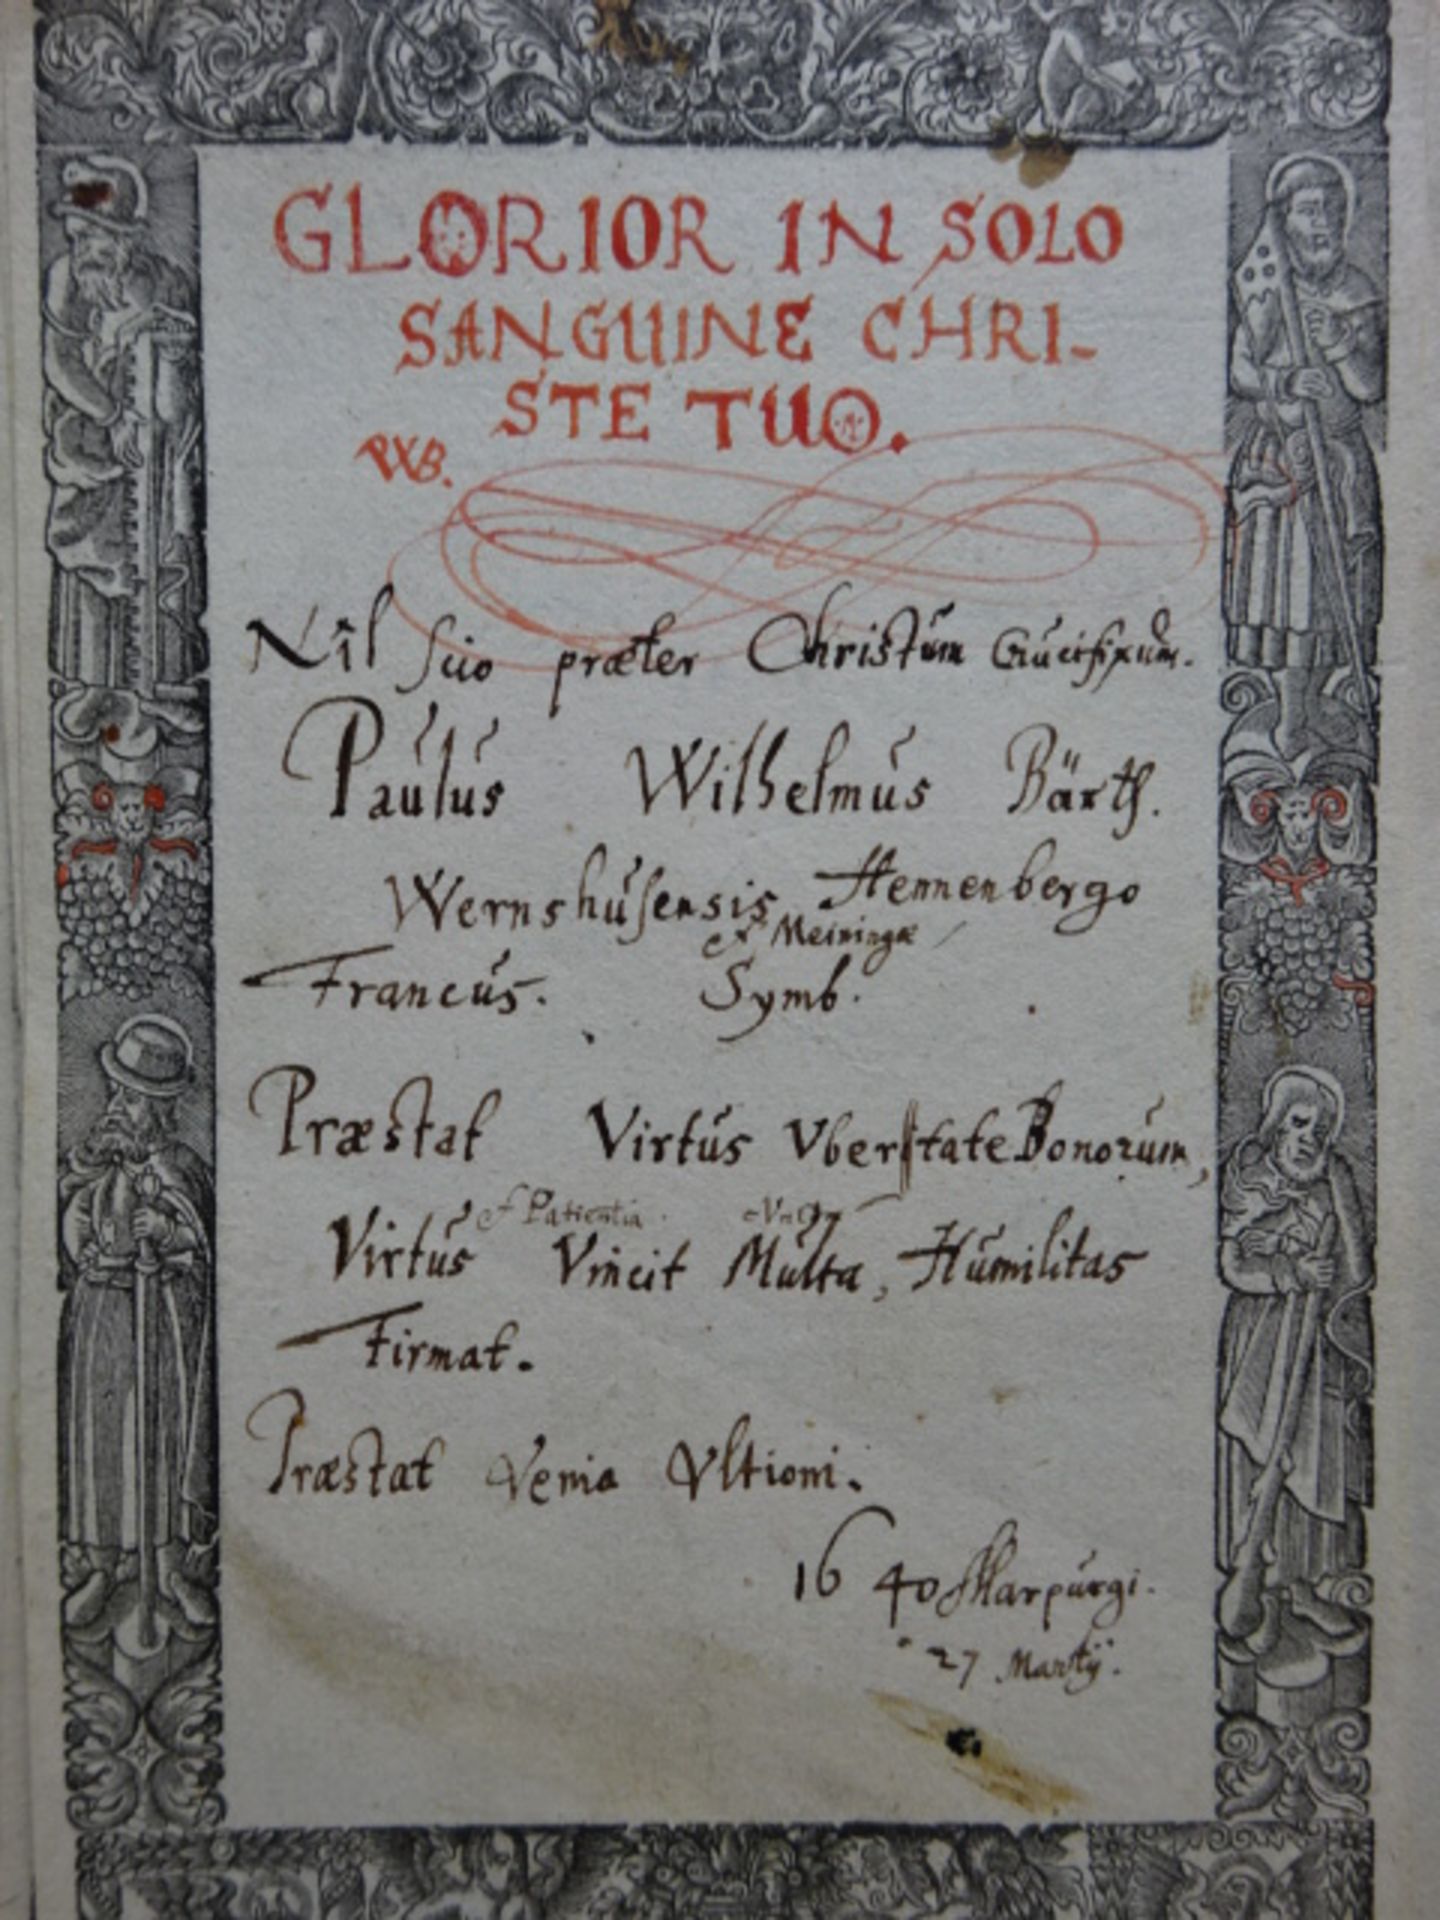 GLORIOR IN SOLO
SANGUINE CHRI-
STE TUO.
PWB.
Nil scio præter Christum Crucifixum.
Paulus Wilhelmus Bärth.
Wernshusensis Hennenbergo
et Meiningæ
Francus. Symb.
Præstat Virtus Vbertate Bonorum,
et Patientia
Virtus Vincit Multa, Humilitas
Firmat.
Præstat Venia Vltioni.
1640 Marpurgi.
27 Martij.